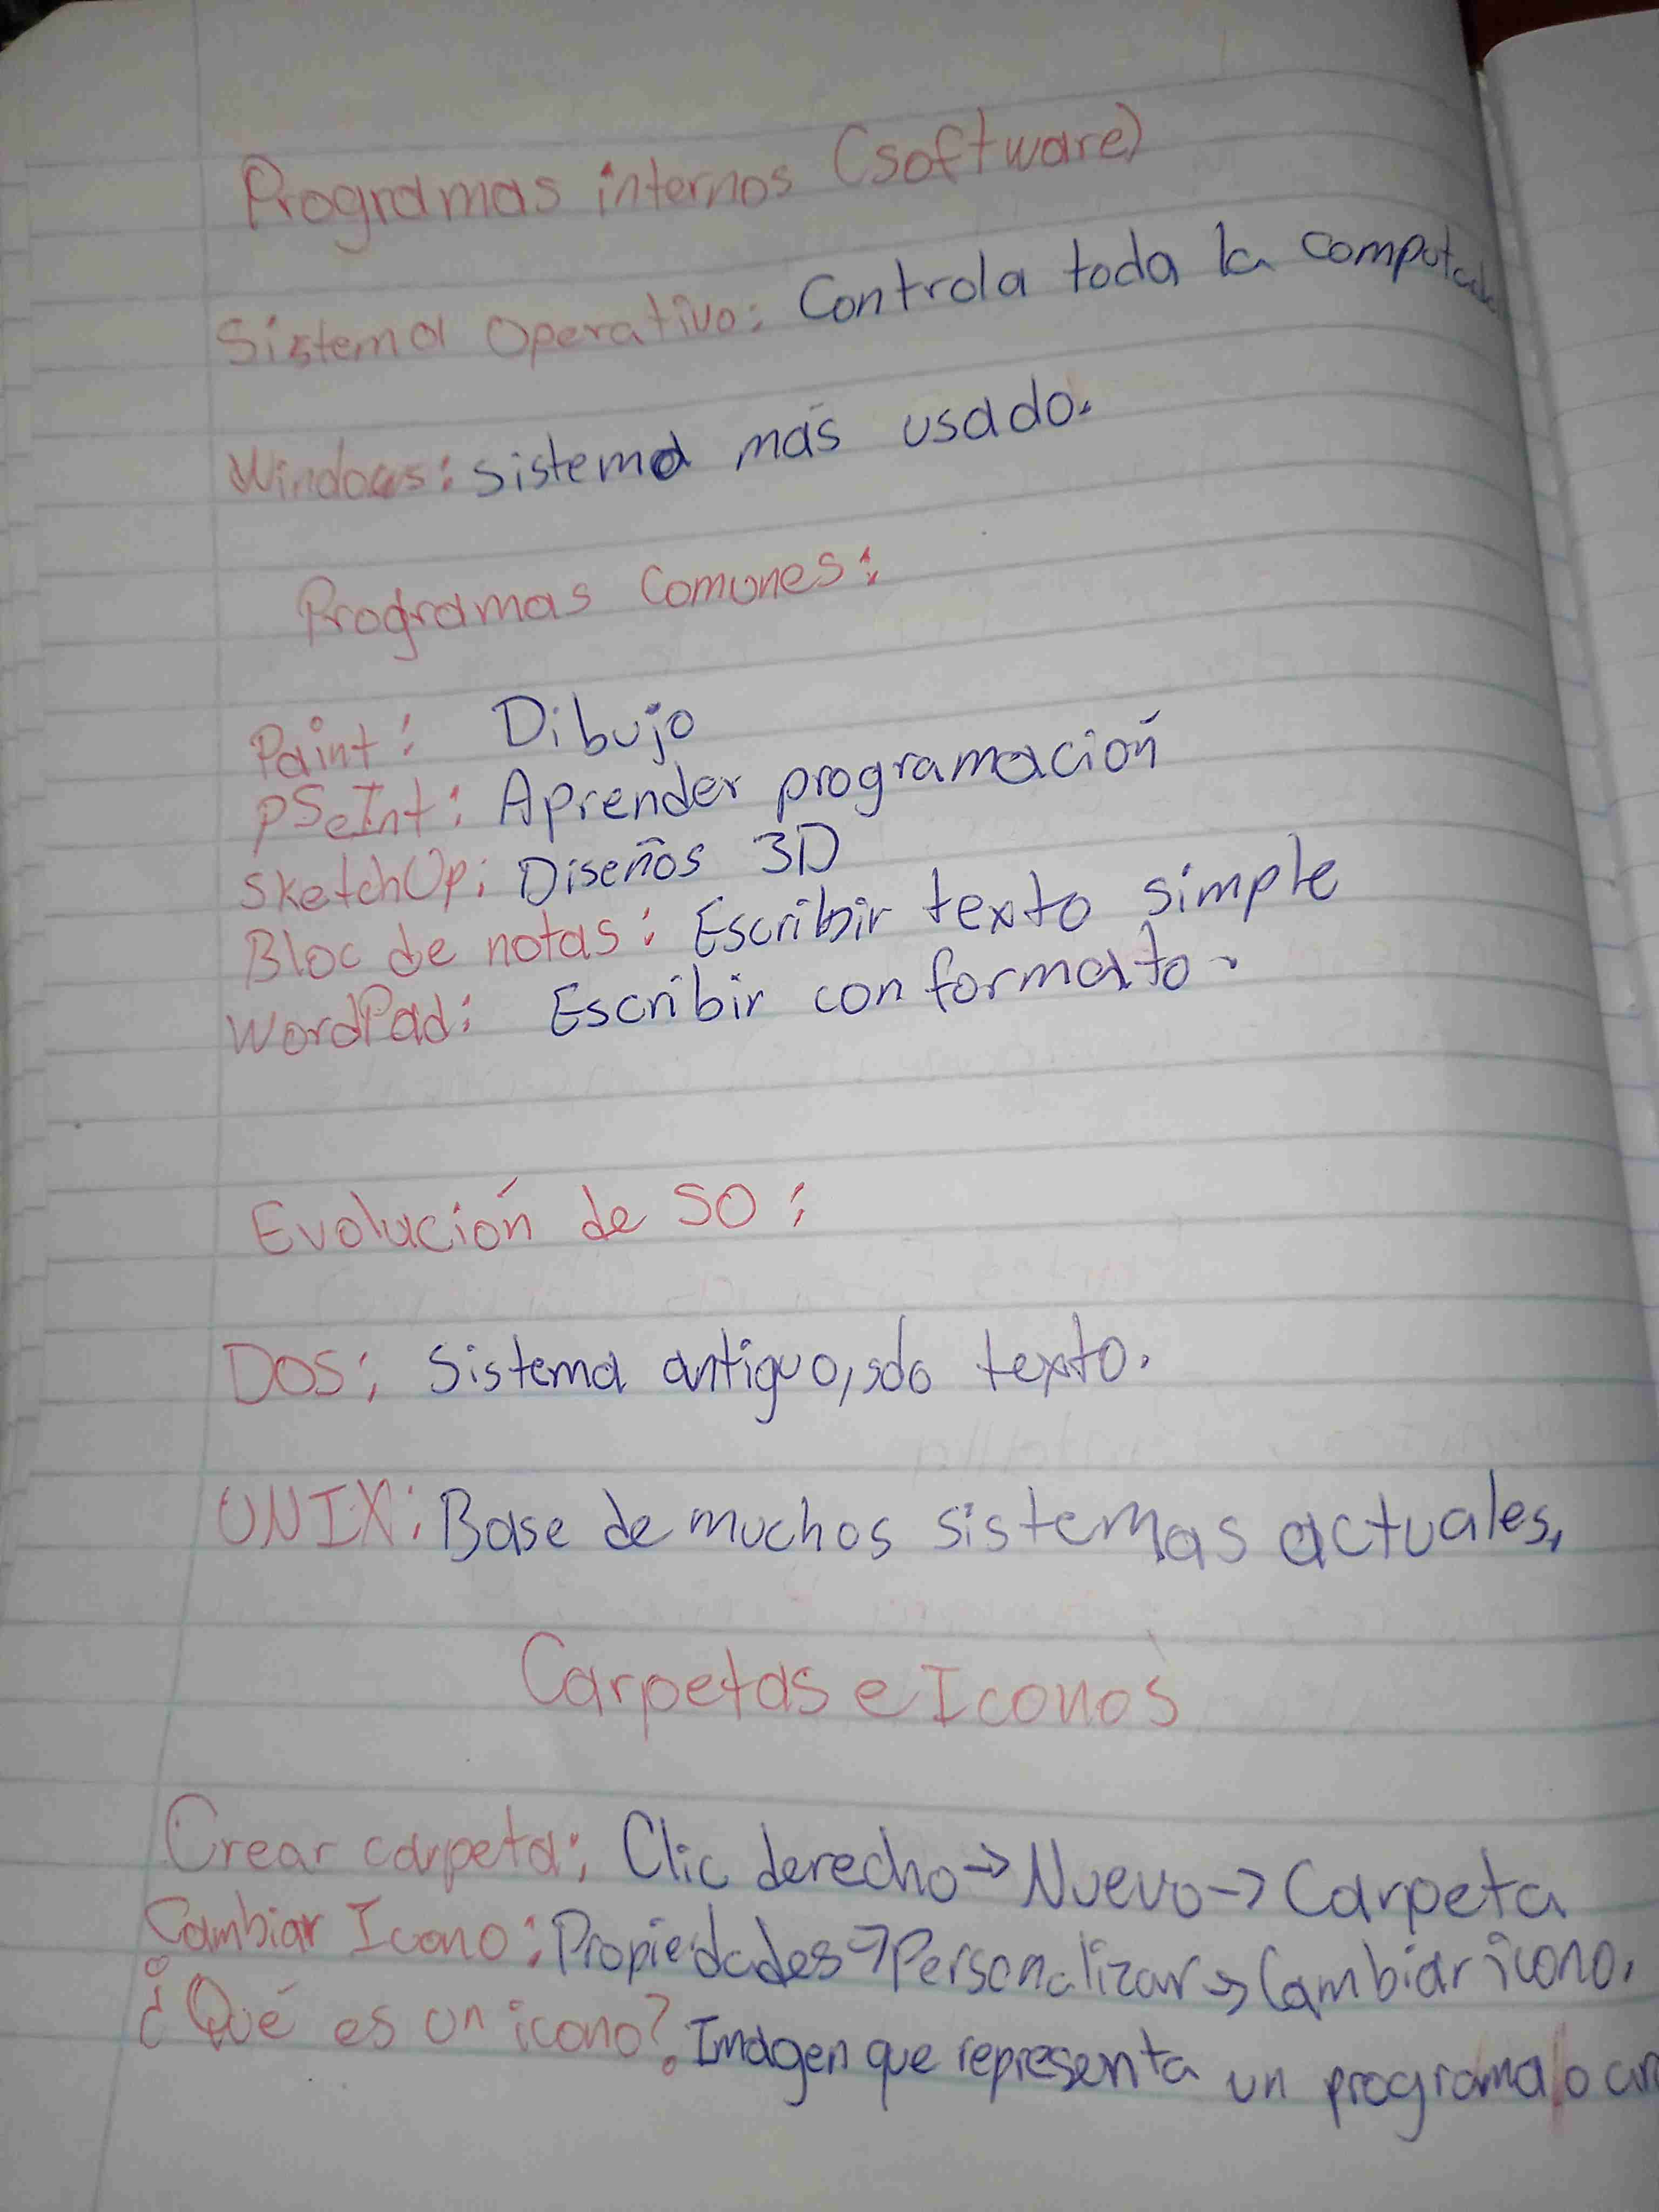 Programas internos (software)
Sistema Operativo: Controla toda la
Windows: sistema más usado.
Programas Comunes:
Paint: Dibujo
PSeInt: Aprender programación
SketchUp: Diseños 3D
Bloc de notas: Escribir texto simple
WordPad: Escribir con formato.
Evolución de SO:
DOS: Sistema antiguo, solo texto.
UNIX: Base de muchos sistemas actuales.
Carpetas e Iconos
Crear carpeta: Clic derecho → Nuevo → Carpeta
Cambiar Icono: Propiedades → Personalizar → Cambiar icono.
¿Qué es un icono? Imagen que representa un programa o